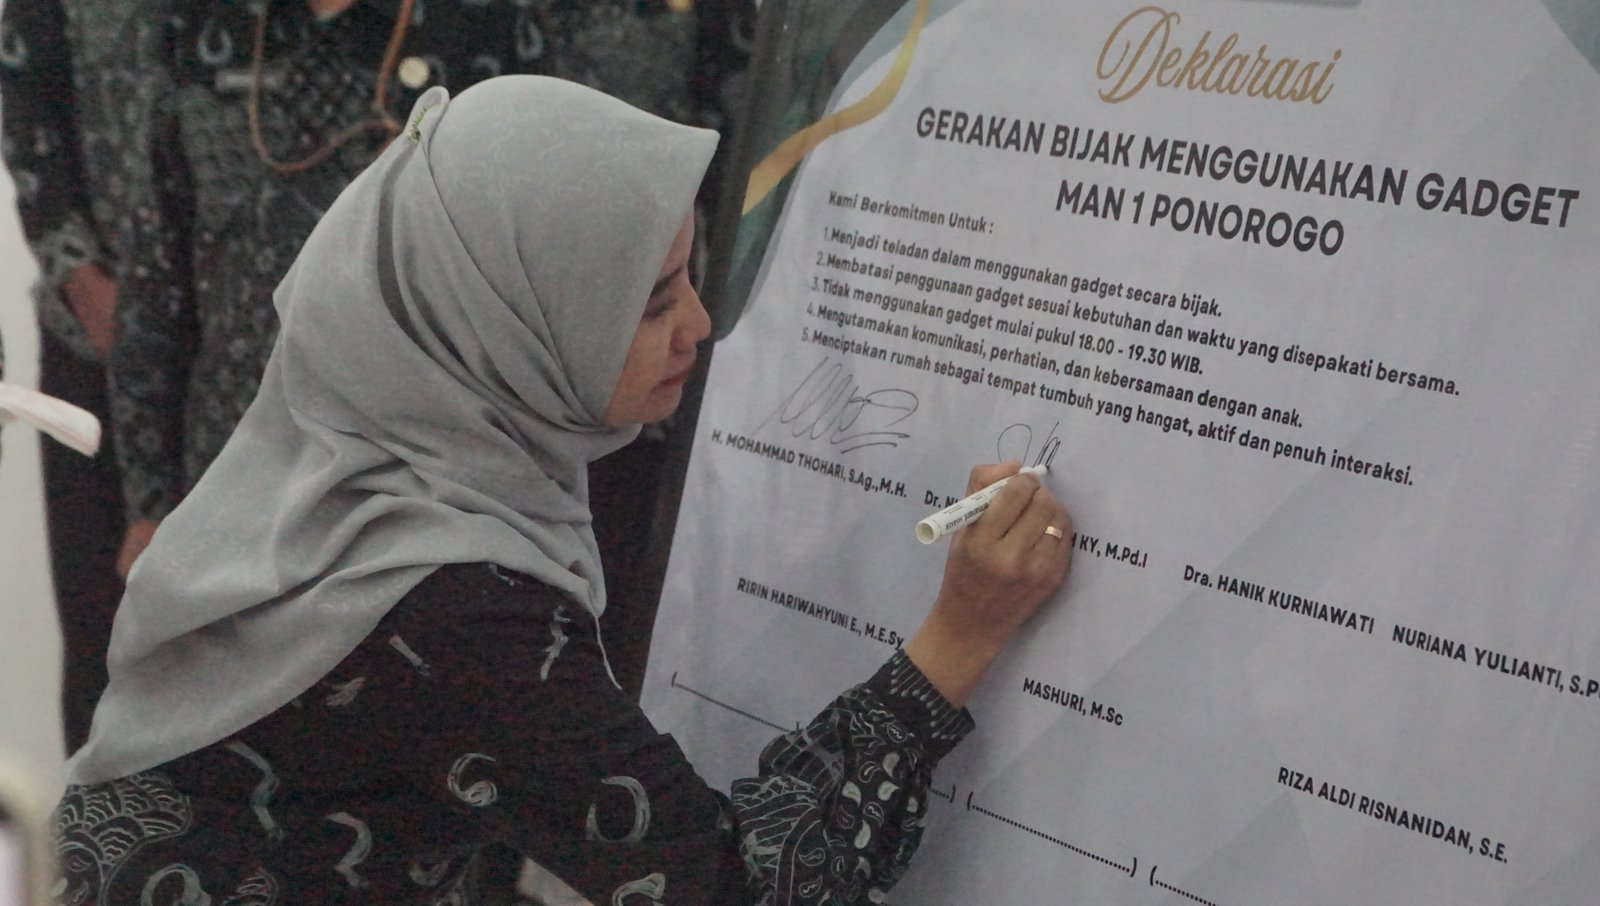 Deklarasi
GERAKAN BIJAK MENGGUNAKAN GADGET
MAN 1 PONOROGO
Kami Berkomitmen Untuk :
1. Menjadi teladan dalam menggunakan gadget secara bijak.
2. Membatasi penggunaan gadget sesuai kebutuhan dan waktu yang disepakati bersama.
3. Tidak menggunakan gadget mulai pukul 18.00 - 19.30 WIB.
4. Mengutamakan komunikasi, perhatian, dan kebersamaan dengan anak.
5. Menciptakan rumah sebagai tempat tumbuh yang hangat, aktif dan penuh interaksi.
H. MOHAMMAD THOHARI, S.Ag.,M.H.
Dr. KY, M.Pd.I
Dra. HANIK KURNIAWATI
NURIANA YULIANTI, S.P
RIRIN HARIWAHYUNI E., M.E.Sy
MASHURI, M.Sc
RIZA ALDI RISNANIDAN, S.E.
MARKER